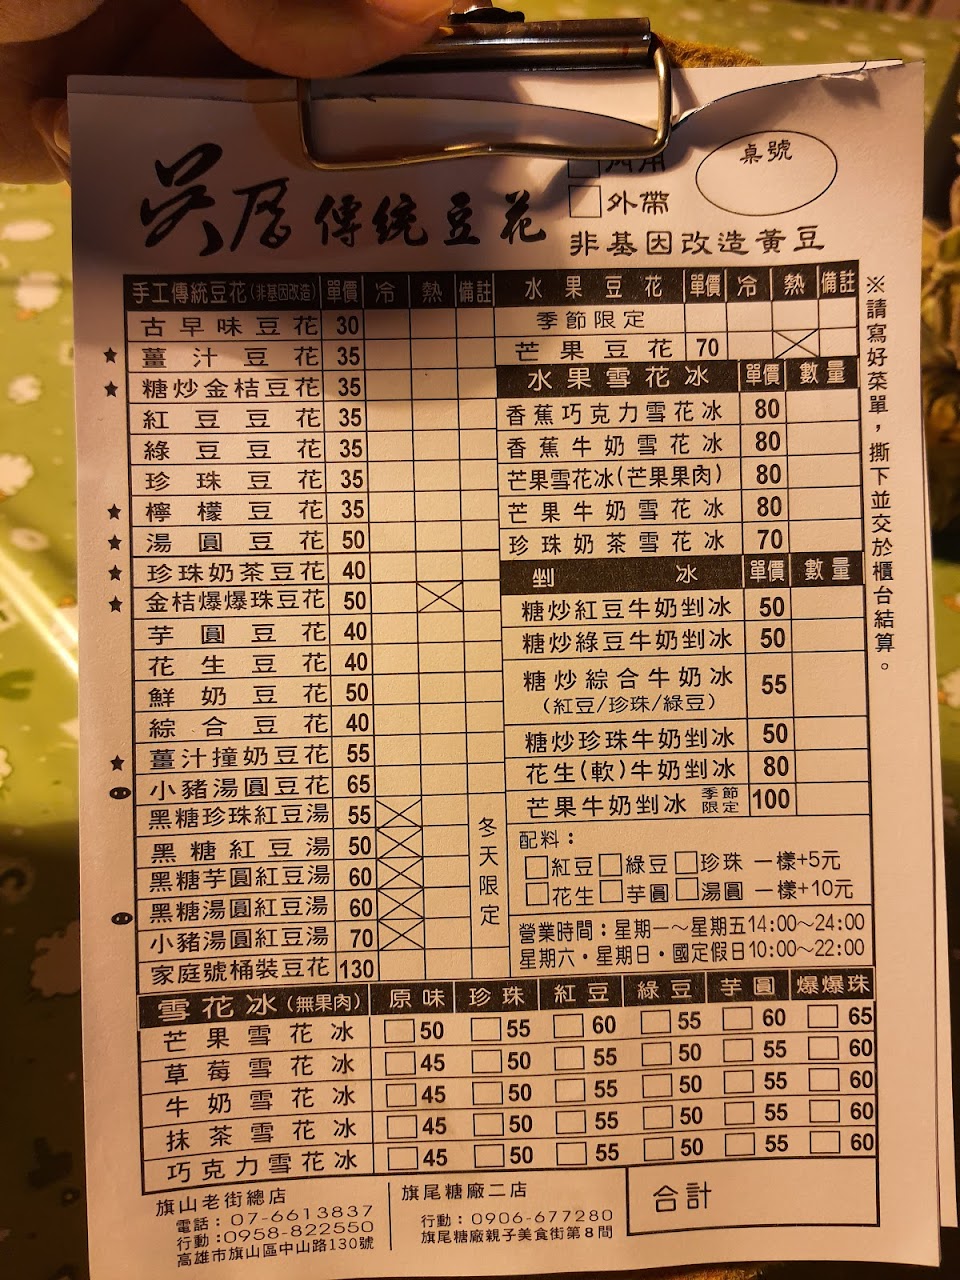 桌號
外帶
吳厝傳統豆花
非基因改造黃豆
※請寫好菜單，撕下並交於櫃台結算。
手工傳統豆花(非基因改造) 單價 冷 熱 備註
古早味豆花 30
★ 薑汁豆花 35
★ 糖炒金桔豆花 35
紅豆豆花 35
綠豆豆花 35
珍珠豆花 35
★ 檸檬豆花 35
★ 湯圓豆花 50
★ 珍珠奶茶豆花 40
★ 金桔爆爆珠豆花 50
芋圓豆花 40
花生豆花 40
鮮奶豆花 50
綜合豆花 40
★ 薑汁撞奶豆花 55
小豬湯圓豆花 65
黑糖珍珠紅豆湯 55
黑糖紅豆湯 50
黑糖芋圓紅豆湯 60
黑糖湯圓紅豆湯 60
小豬湯圓紅豆湯 70
冬天限定
家庭號桶裝豆花 130
水果豆花 單價 冷 熱 備註
季節限定
芒果豆花 70
水果雪花冰 單價 數量
香蕉巧克力雪花冰 80
香蕉牛奶雪花冰 80
芒果雪花冰(芒果果肉) 80
芒果牛奶雪花冰 80
珍珠奶茶雪花冰 70
剉冰 單價 數量
糖炒紅豆牛奶剉冰 50
糖炒綠豆牛奶剉冰 50
糖炒綜合牛奶冰 55
(紅豆/珍珠/綠豆)
糖炒珍珠牛奶剉冰 50
花生(軟)牛奶剉冰 80
芒果牛奶剉冰 季節限定 100
配料：
紅豆 綠豆 珍珠 一樣+5元
花生 芋圓 湯圓 一樣+10元
營業時間：星期一～星期五14:00～24:00
星期六・星期日・國定假日10:00～22:00
雪花冰(無果肉) 原味 珍珠 紅豆 綠豆 芋圓 爆爆珠
芒果雪花冰 50 55 60 55 60 65
草莓雪花冰 45 50 55 50 55 60
牛奶雪花冰 45 50 55 50 55 60
抹茶雪花冰 45 50 55 50 55 60
巧克力雪花冰 45 50 55 50 55 60
旗山老街總店
電話：07-6613837
行動：0958-822550
高雄市旗山區中山路130號
旗尾糖廠二店
行動：0906-677280
旗尾糖廠親子美食街第8間
合計